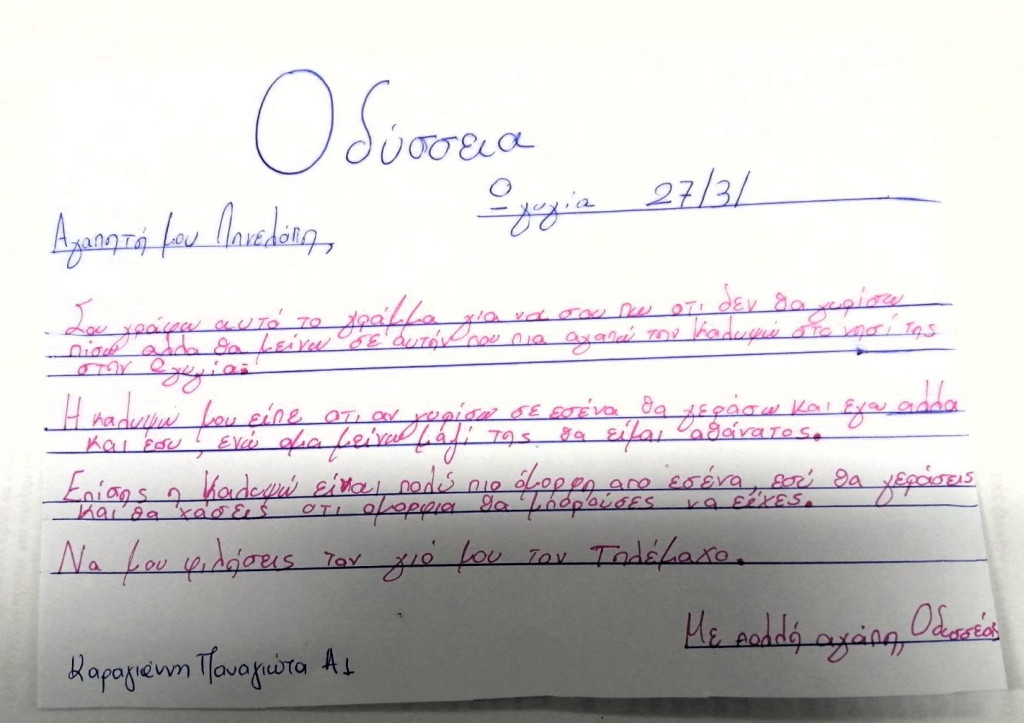 Οδύσσεια
Ωγυγία 27/3/
Αγαπητή μου Πηνελόπη,
Σου γράφω αυτό το γράμμα για να σου πω οτι δεν θα γυρίσω
πίσω αλλα θα μείνω σε αυτήν που πια αγαπώ την Καλυψώ στο νησί της
στην Ωγυγία.
Η καλυψώ μου είπε οτι αν γυρίσω σε εσένα θα γεράσω και εγω αλλα
και εσυ, ενώ αμα μείνω μαζί της θα είμαι αθάνατος.
Επίσης η Καλυψώ είναι πολύ πιο όμορφη απο εσένα, εσύ θα γεράσεις
και θα χάσεις οτι ομορφια θα μπορούσες να είχες.
Να μου φιλήσεις τον γιό μου τον Τηλέμαχο.
Με πολλή αγάπη, Οδυσσέας
Καραγιάννη Παναγιώτα Α1